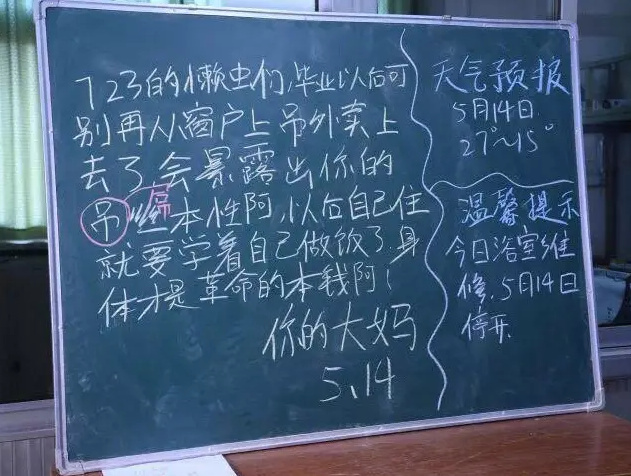 723的懒虫们，毕业以后可
别再从窗户上吊外卖上
去了会暴露出你的
吊丝本性阿，以后自己住
屌
就要学着自己做饭了.身
体才是革命的本钱阿！
你的大妈
5.14
天气预报
5月14日
27°~15°
温馨提示
今日浴室维
修.5月14日
停开.